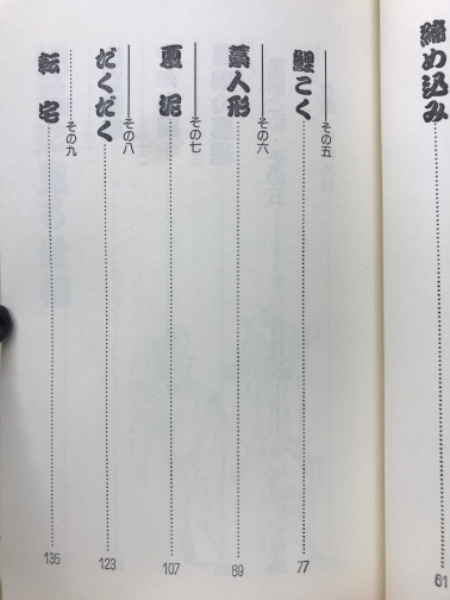 締め込み
61
その五
鯉こく
77
その六
藁人形
89
その七
夏泥
107
その八
だくだく
123
その九
転宅
135